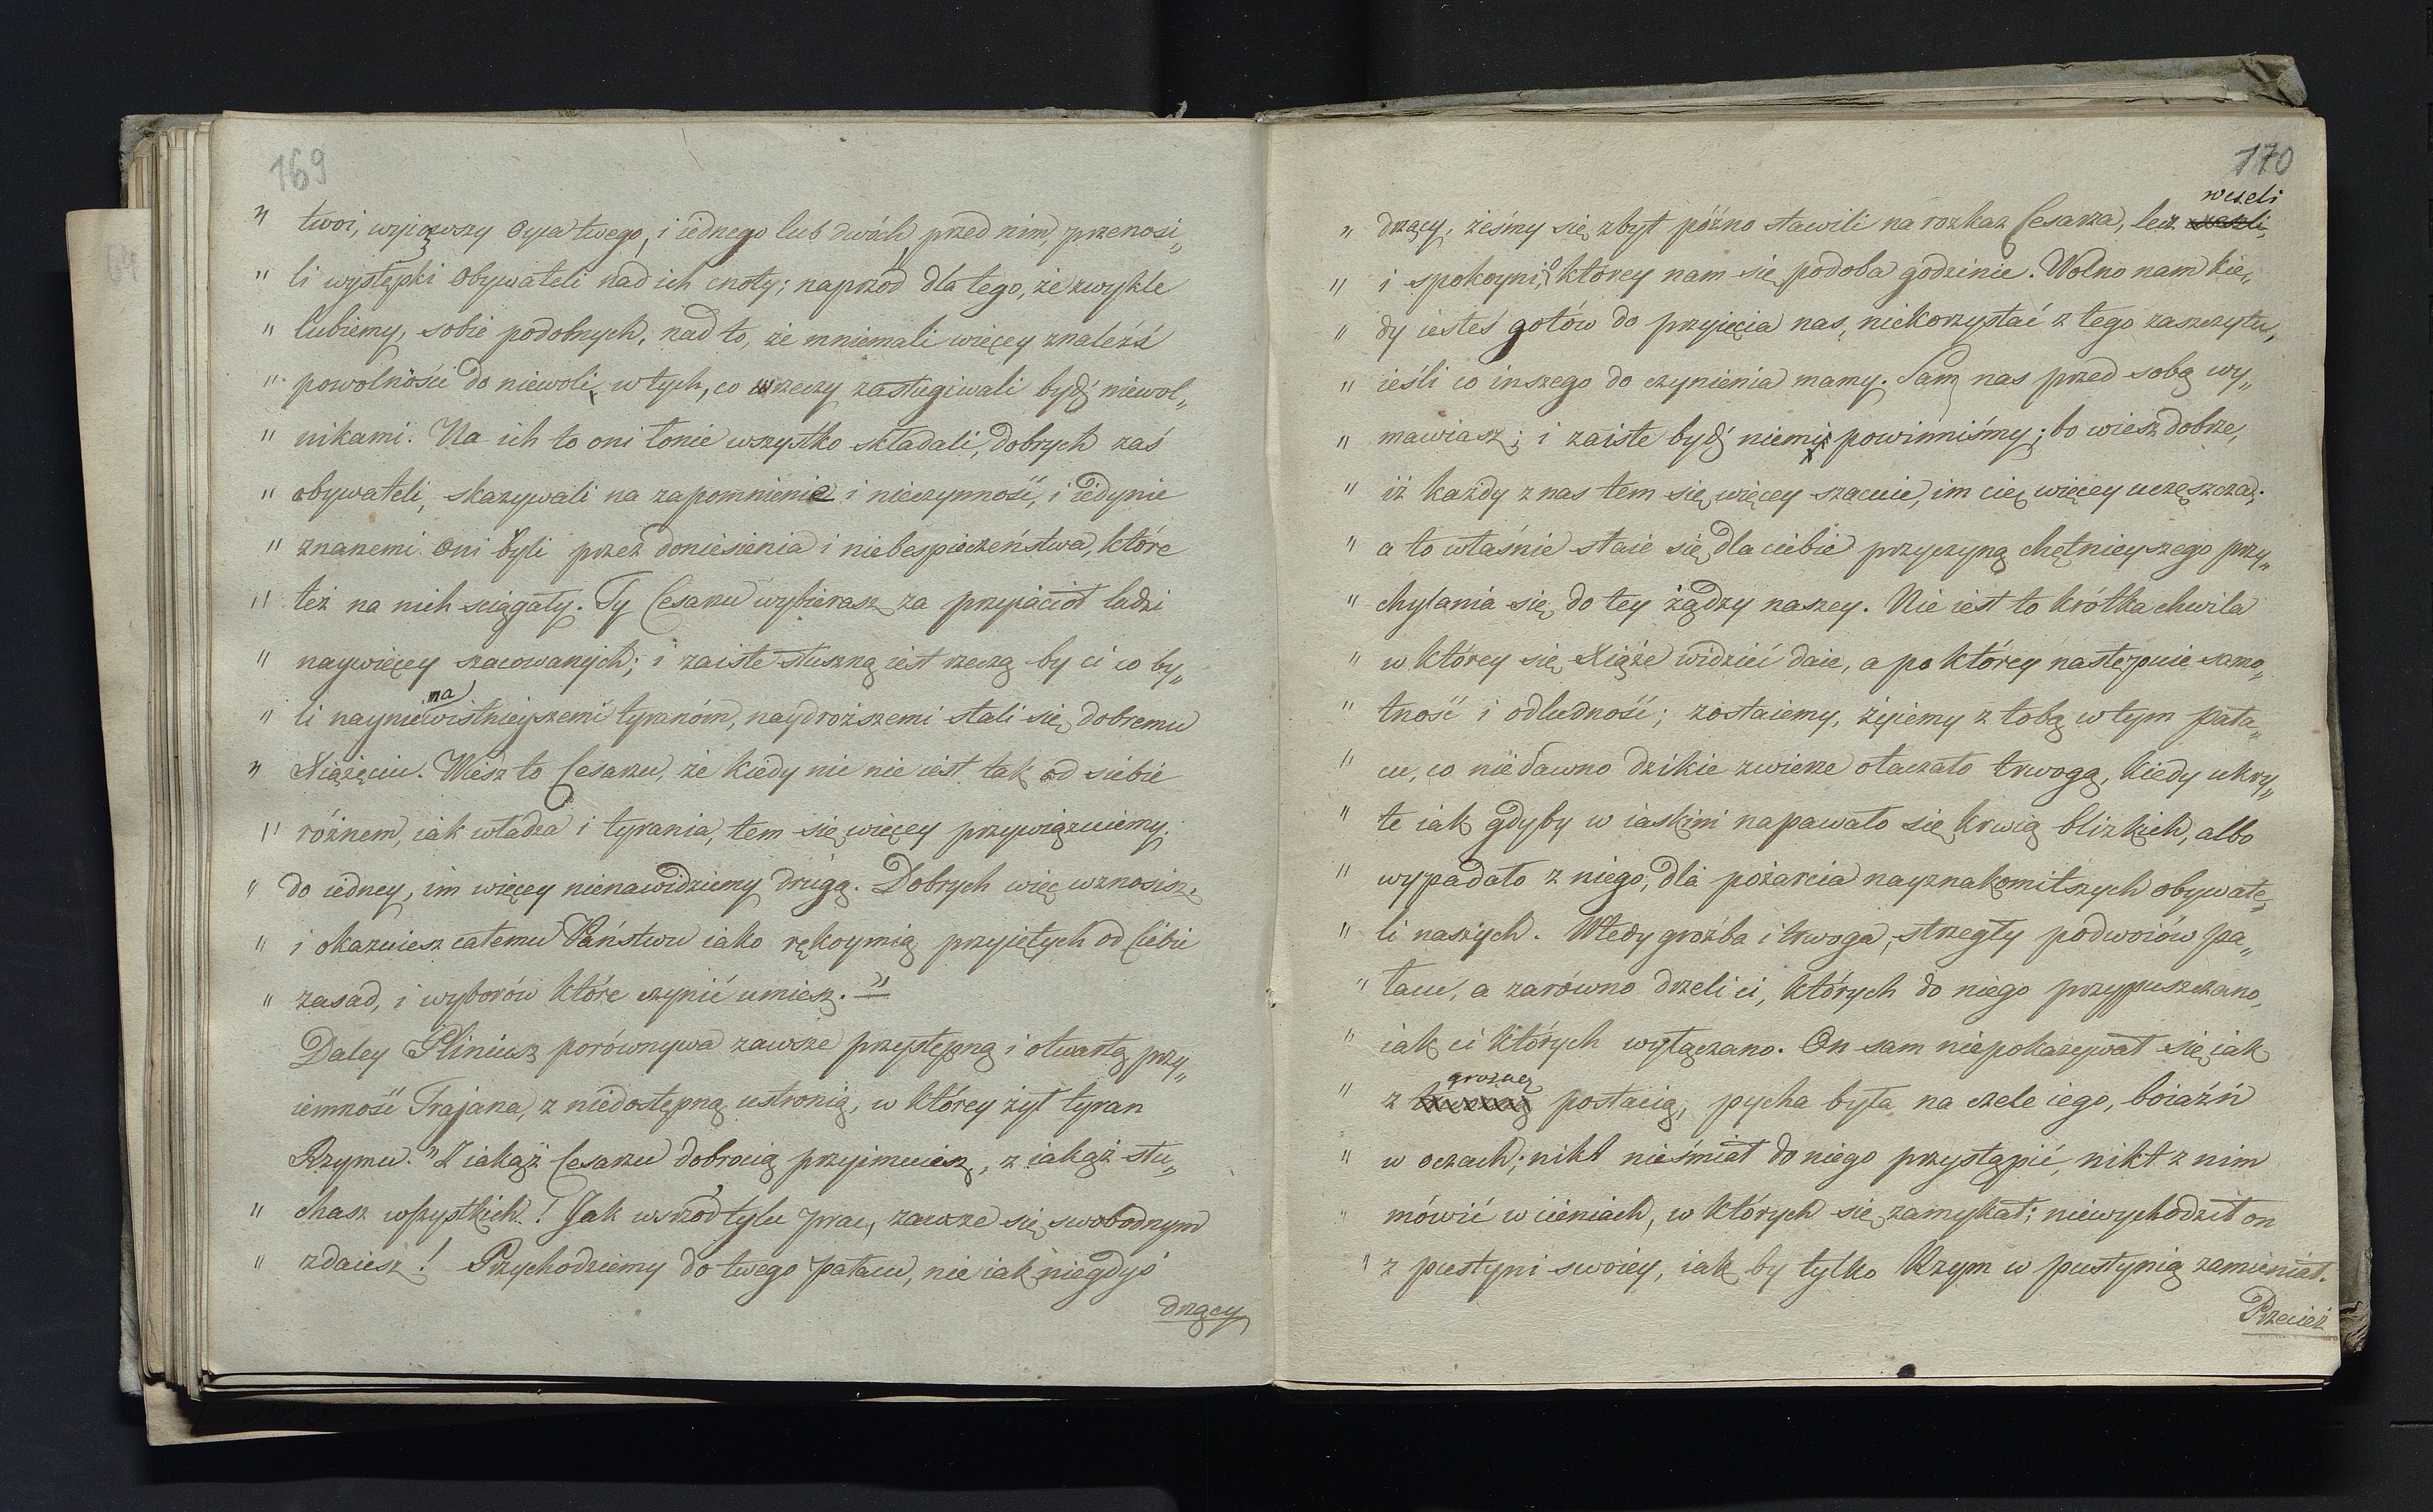 169
" twoi, wyiąwszy Oyca twego, i iednego lub dwóch przed nim, przenosi„
" li występki Obywateli nad ich cnoty; naprzód dla tego, że zwykle
" lubiemy, sobie podobnych, nad to, że mniemali więcey znaleźć
" powolności do niewoli, w tych, co w rzeczy zasługiwali bydź niewol„
" nikami. Na ich to oni łonie wszystko składali, dobrych zaś
" obywateli, skazywali na zapomnienie i nieczynność, i iedynie
" znanemi oni byli przez doniesienia i niebespieczeństwa, które
" też na nich sciągały. Ty Cesarzu wybierasz za przyiaciół ludzi
" naywięcey szacowanych; i zaiste słuszną iest rzeczą by ci co by„
na
" li nayniewistnieyszemi tyranóm, naydroższemi stali się dobremu
" Xiążęciu. Wiesz to Cesarzu, że kiedy nic nie iest tak od siebie
" różnem, iak władza i tyrania, tem się więcey przywiązuiemy
" do iedney, im więcey nienawidziemy drugą. Dobrych więc wznosisz,
" i okazuiesz całemu Państwu iako rękoymią przyiętych od Ciebie
" zasad, i wyborów które czynić umiesz. "
Daley Pliniusz porównywa zawsze przystępną i otwartą przy„
iemność Trajana, z niedostępną ustronią, w którey żył tyran
Rzymu. " Z iakąż Cesarzu dobrocią przyimuiesz, z iakąż słu„
" chasz wszystkich! Jak wsrzód tylu prac, zawsze się swobodnym
" zdaiesz! Przychodziemy do twego pałacu, nie iak niegdyś
drżący
170
weseli
" drżący, żeśmy się zbyt późno stawili na rozkaz Cesarza, lecz weseli,
" i spokoyni, o którey nam się podoba godzinie. Wolno nam kie„
" dy iesteś gotów do przyięcia nas, niekorzystać z tego zaszczytu,
" ieśli co inszego do czynienia mamy. Sam nas przed sobą wy„
" mawiasz; i zaiste bydź niemi powinniśmy; bo wiesz dobrze,
" iż każdy z nas tem się więcey szacuie, im cię więcey uczęszcza;
" a to właśnie staie się dla ciebie przyczyną chętnieyszego przy„
" chylania się do tey żądzy naszey. Nie iest to krótka chwila
" w którey się Xiąże widzieć daie, a po którey następuie samo„
" tność i odludność; zostaiemy, żyiemy z tobą w tym pała„
" cu, co niedawno dzikie zwierze otaczało trwogą, kiedy ukry„
" te iak gdyby w iaskini napawało się krwią blizkich, albo
" wypadało z niego, dla pożarcia nayznakomitszych obywate„
" li naszych. Wtedy groźba i trwoga, strzegły podwoiów pa„
" łacu, a zarówno drżeli ci, których do niego przypuszczano,
" iak ci których wyłączano. On sam niepokazywał się iak
groźną
" z postacią, pycha była na czele iego, boiaźń
" w oczach; nikt nieśmiał do niego przystąpić, nikt z nim
" mówić w cieniach, w których się zamykał; niewychodził on
" z pustyni swoiey, iak by tylko Rzym w pustynią zamieniał.
Przecież